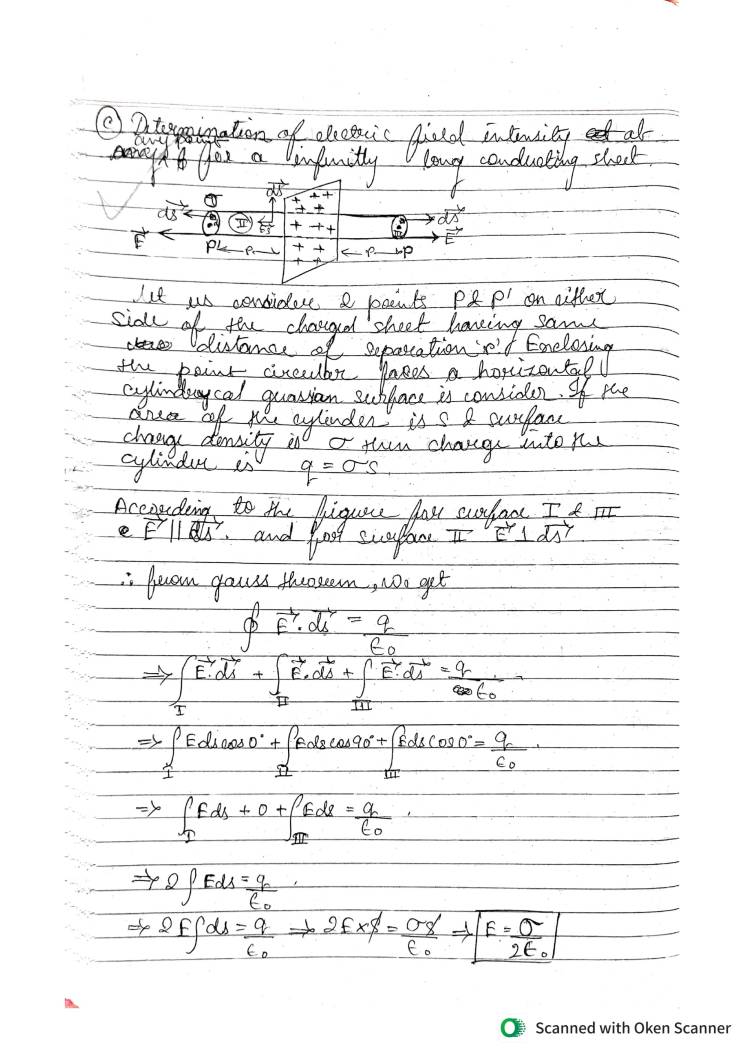 Ⓒ Determination of electric field intensity at
any point for a infinitly long conducting sheet.
ds→ I ds→ + + + ds→
II Es→ + + III
E→ + + + E→
P' ← r → + + ← r → P
+ +
Let us considere 2 points P & P' on either
side of the charged sheet having same
distance of separation 'r'. Enclosing
the point circular faces a horizontal
cylindrycal guassian surface is consider. If the
area of the cylinder is s & surface
charge density is σ then charge into the
cylinder is q = σs
According to the figure for surface I & III
E→ || ds→. and for surface II E→ ⊥ ds→
∴ from gauss theorem, we get
∮ E→. ds→ = q/ε₀
⇒ ∫I E→.ds→ + ∫II E→.ds→ + ∫III E→.ds→ = q/ε₀
⇒ ∫I Eds cos0° + ∫II Eds cos90° + ∫III Eds cos0° = q/ε₀
⇒ ∫I Eds + 0 + ∫III Eds = q/ε₀
⇒ 2∫Eds = q/ε₀
⇒ 2E∫ds = q/ε₀ ⇒ 2E×s = σs/ε₀ ⇒ E = σ/2ε₀
Scanned with Oken Scanner